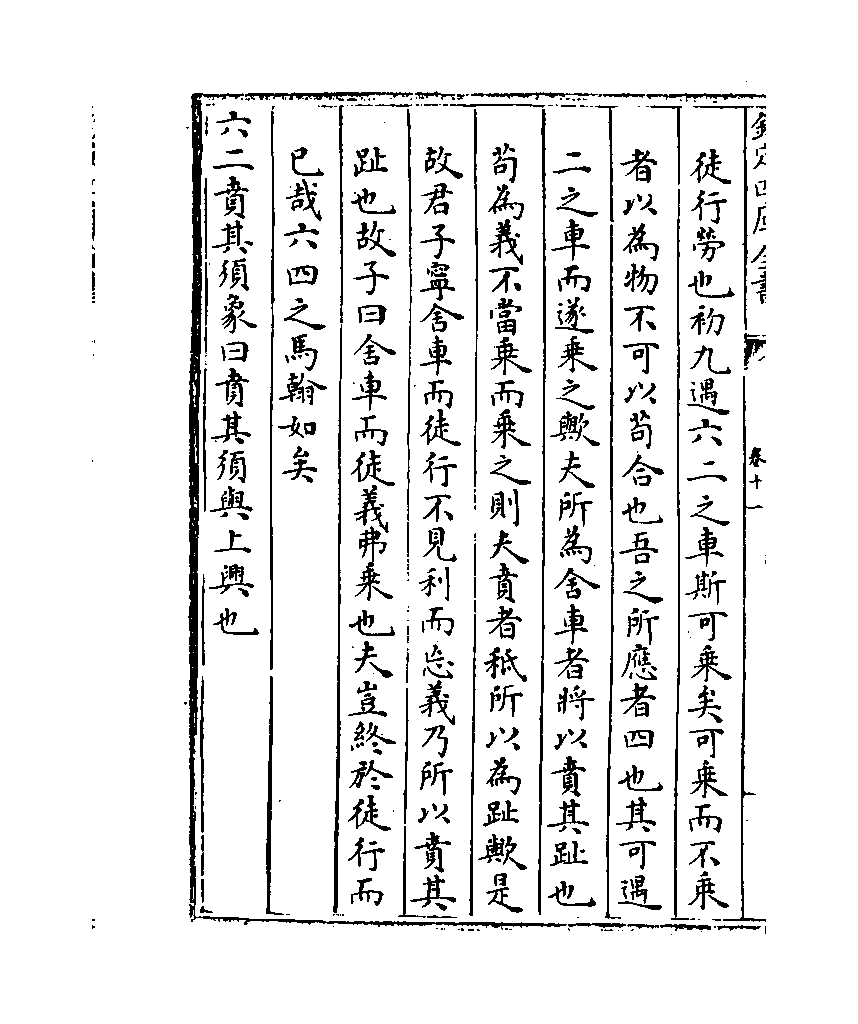 欽定四庫全書
卷十一
徒行勞也初九遇六二之車斯可乗矣可乗而不乗
者以為物不可以茍合也吾之所應者四也其可遇
二之車而遂乗之歟夫所為舍車者將以賁其趾也
茍為義不當乗而乗之則夫賁者秪所以為趾歟是
故君子寧舍車而徒行不見利而忘義乃所以賁其
趾也故子曰舍車而徒義弗乗也夫豈終於徒行而
已哉六四之馬翰如矣
六二賁其須象曰賁其須與上興也